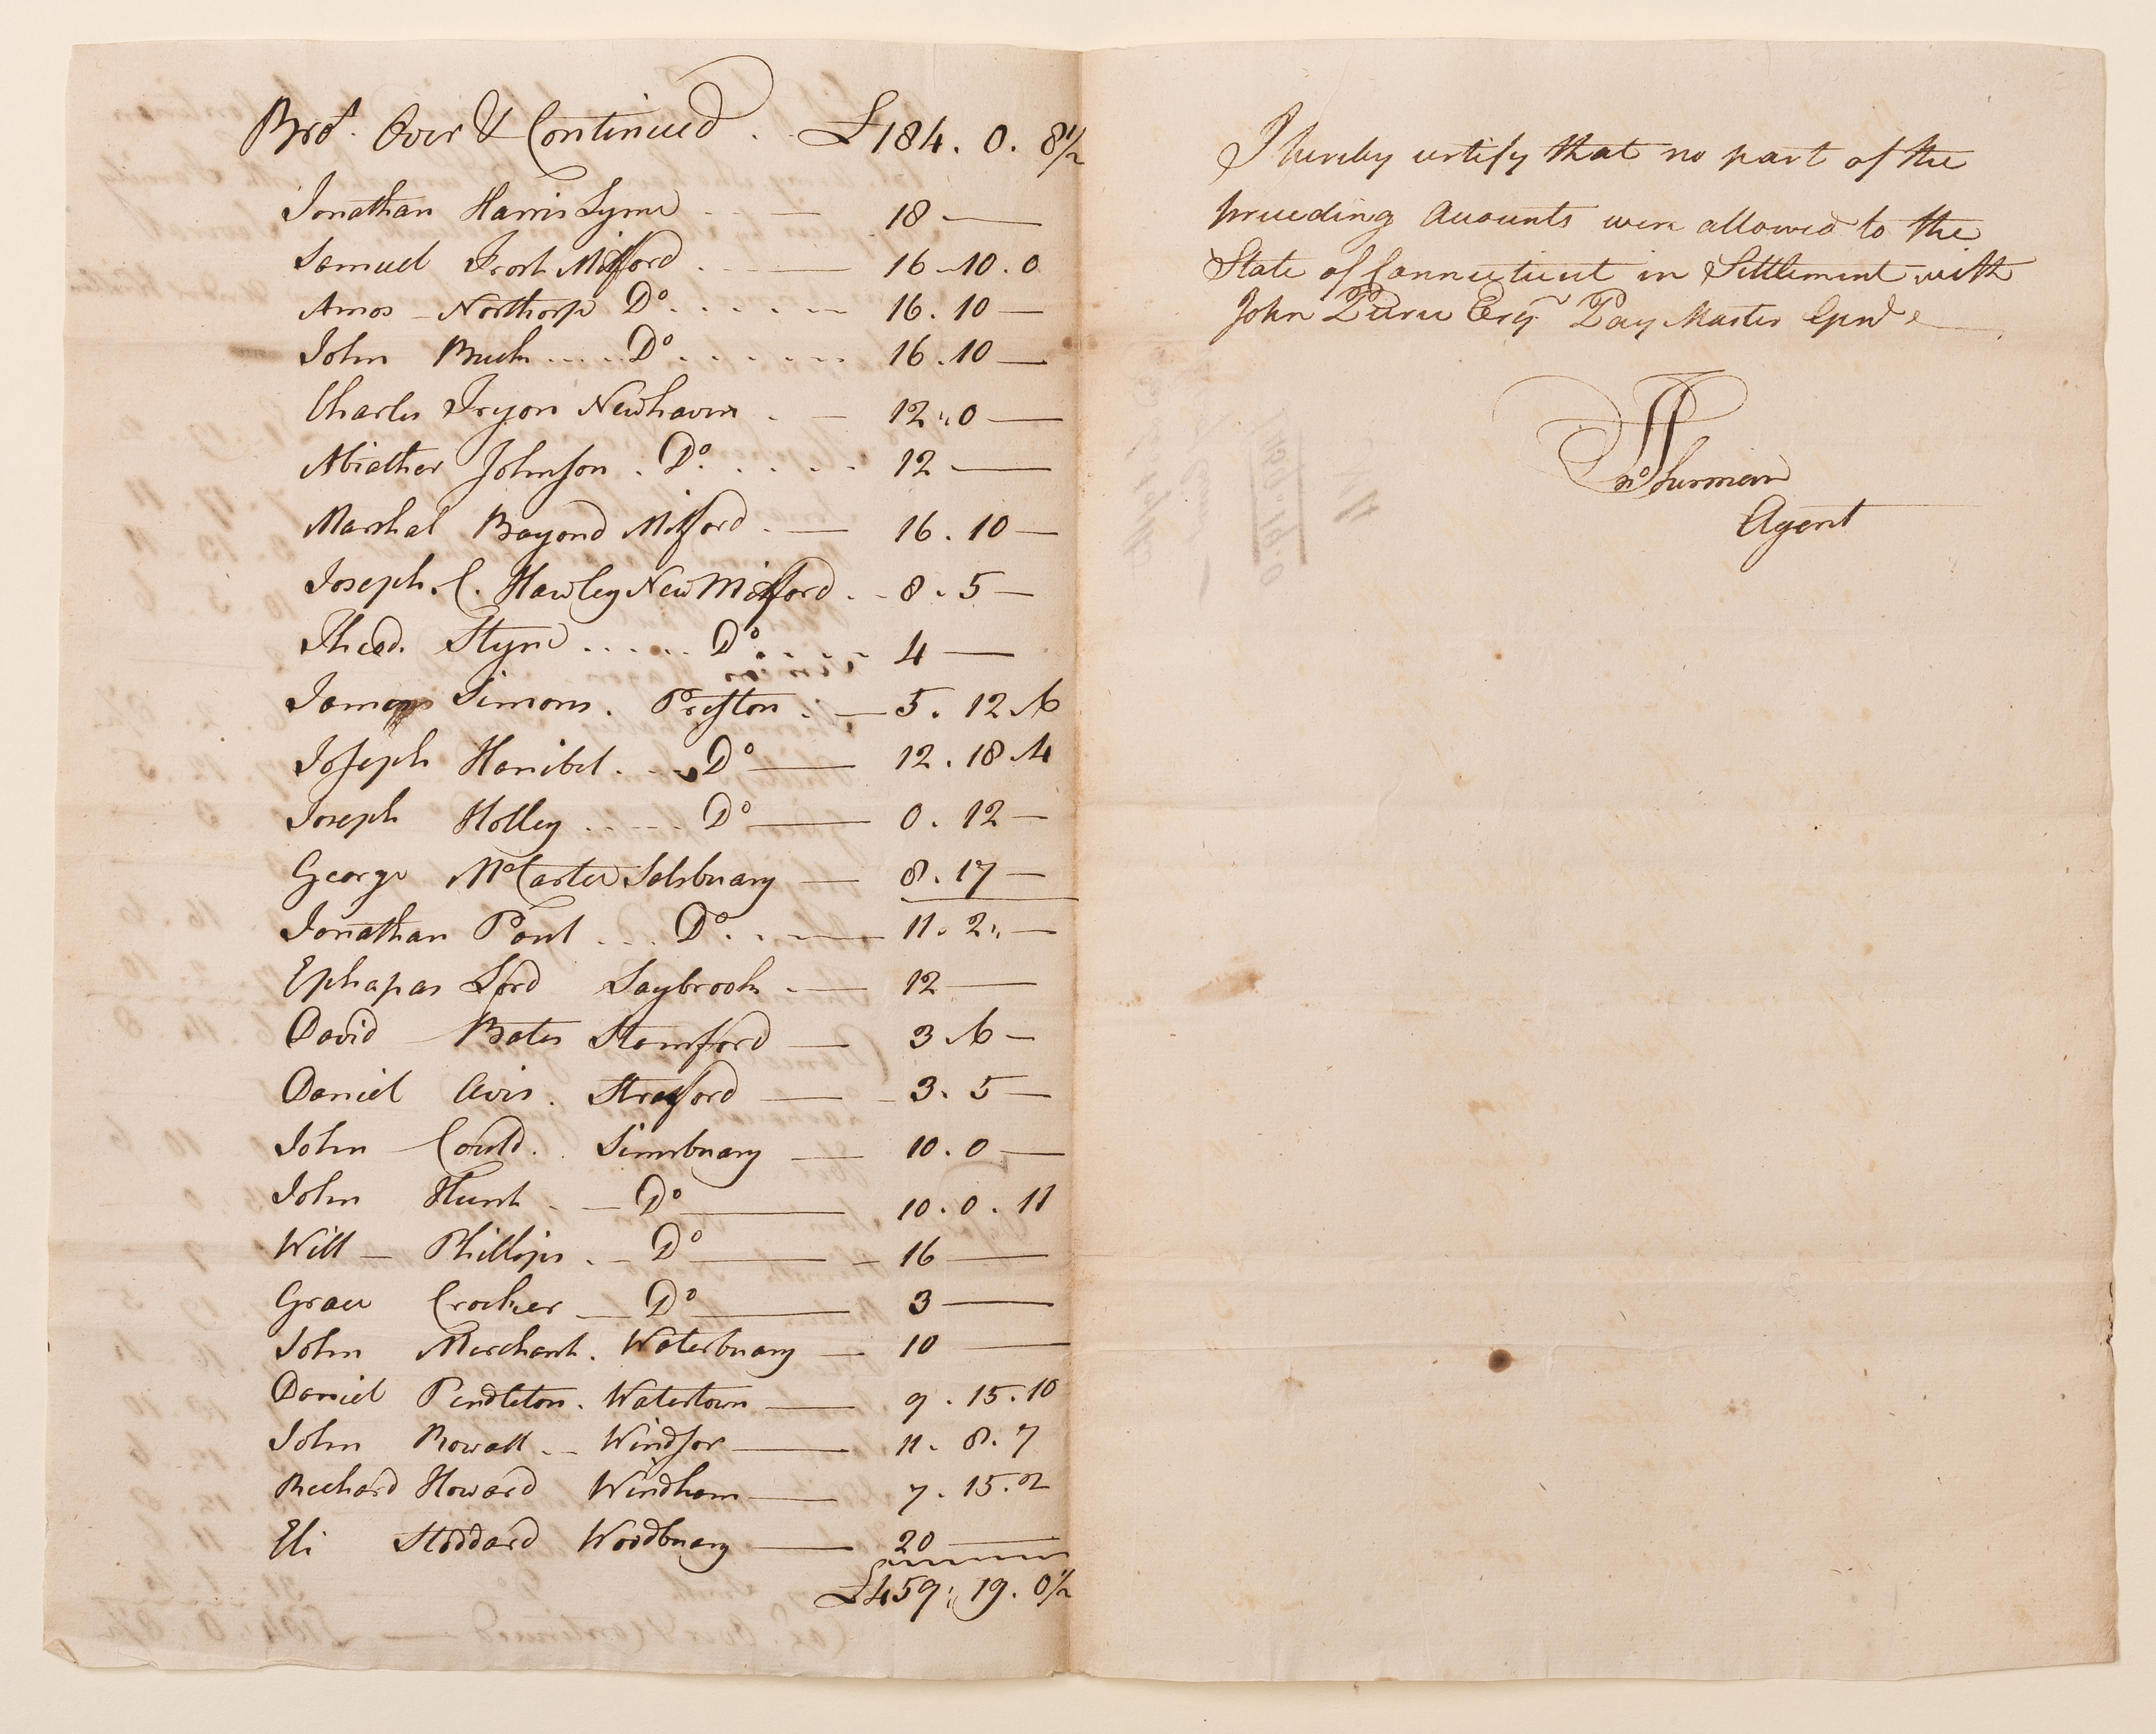 Bro.t Over & Continued . . £184. 0. 8½
Jonathan Harris Lyme - - — 18 —
Samuel Frost Milford . — 16-10.0
Amos - Northorp Do. . . . . . 16.10 —
John Buch .... Do. . . . . . 16.10 —
Charles Tryon Newhaven . — 12"0 —
Abiather Johnson . Do. . . . . 12 —
Marshal Bayond Milford . — 16.10 —
Joseph. C. Hawley New Milford . - 8.5 —
Thead. Styne . . . . . Do . . . . 4 —
James Simons . Preston . — 5.12.6
Joseph Hanibel . - - Do — 12.18.4
Joseph Holley . . - - - Do — 0.12 —
George McCarter Salsbuary — 8.17 —
Jonathan Pont . . . Do. . - — 11.2" —
Ephapas Lord Saybrook . — 12 —
David Bates Stamford — 3.6 —
Daniel Avis . Stratford — 3.5 —
John Could . . Simsbuary — 10.0 —
John Hunt . — Do — 10.0.11
Will — Phillips . - Do — 16 —
Grace Crocker — Do — 3 —
John Merchant . Waterbuary — 10 —
Daniel Pendleton . Watertown — 9.15.10
John Rowall . - Windsor — 11.8.7
Reichard Howard Windham — 7.15.2
Eli Stoddard Woodbuary — 20 —
£459" 19. 0½
I hereby certify that no part of the
preceding Accounts were allowed to the
State of Connecticut in Settlement with
John Pierce Esqr Pay Master Genl
Agent